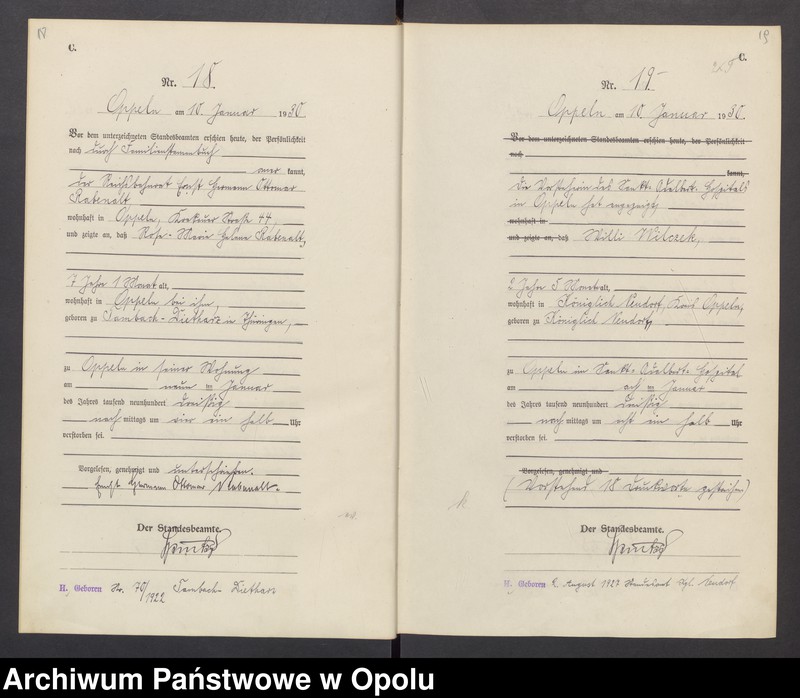 18
C.
Nr. 18.
Oppeln am 10. Januar 1930
Vor dem unterzeichneten Standesbeamten erschien heute, der Persönlichkeit
nach durch Familienstammbuch
aner kannt,
der Ernst Hermann Ottomar
Rabenalt
wohnhaft in Oppeln, Krakauer Straße 44,
und zeigte an, daß Rosa-Maria Rabenalt,
7 Jahr 1 Monat alt,
wohnhaft in Oppeln bei ihm,
geboren zu Tambach-Dietharz in Thüringen,
zu Oppeln in seiner Wohnung
am neun ten Januar
des Jahres tausend neunhundert dreißig
nach mittags um ein halb Uhr
verstorben sei.
Vorgelesen, genehmigt und unterschrieben.
Ernst Hermann Ottomar Rabenalt.
Der Standesbeamte.
H. Geboren Nr. 70/1922 Tambach-Dietharz
19
C.
Nr. 19.
Oppeln am 10 Januar 1930.
Vor dem unterzeichneten Standesbeamten erschien heute, der Persönlichkeit
nach
kannt,
Die Vorsteherin des Sankt-Adalbert-Hospitals
in Oppeln hat angezeigt,
wohnhaft in
und zeigte an, daß Willi Wilczek,
2 Jahr 5 Monat alt,
wohnhaft in Königlich Neudorf, Kreis Oppeln,
geboren zu Königlich Neudorf,
zu Oppeln im Sankt-Adalbert-Hospital
am acht ten Januar
des Jahres tausend neunhundert dreißig
nach mittags um acht ein halb Uhr
verstorben sei.
Vorgelesen, genehmigt und
(Vorstehend 18 Druckworte gestrichen)
Der Standesbeamte.
H. Geboren 2. August 1927 Standesamt Kgl. Neudorf
Archiwum Państwowe w Opolu